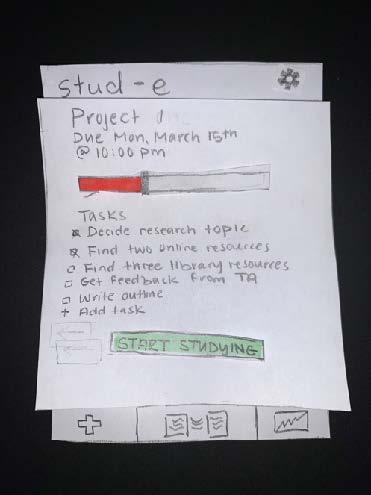 stud-e
Project 1
Due Mon, March 15th
@ 10:00 pm
Tasks
Decide research topic
Find two online resources
Find three library resources
Get feedback from TA
Write outline
+ Add task
START STUDYING